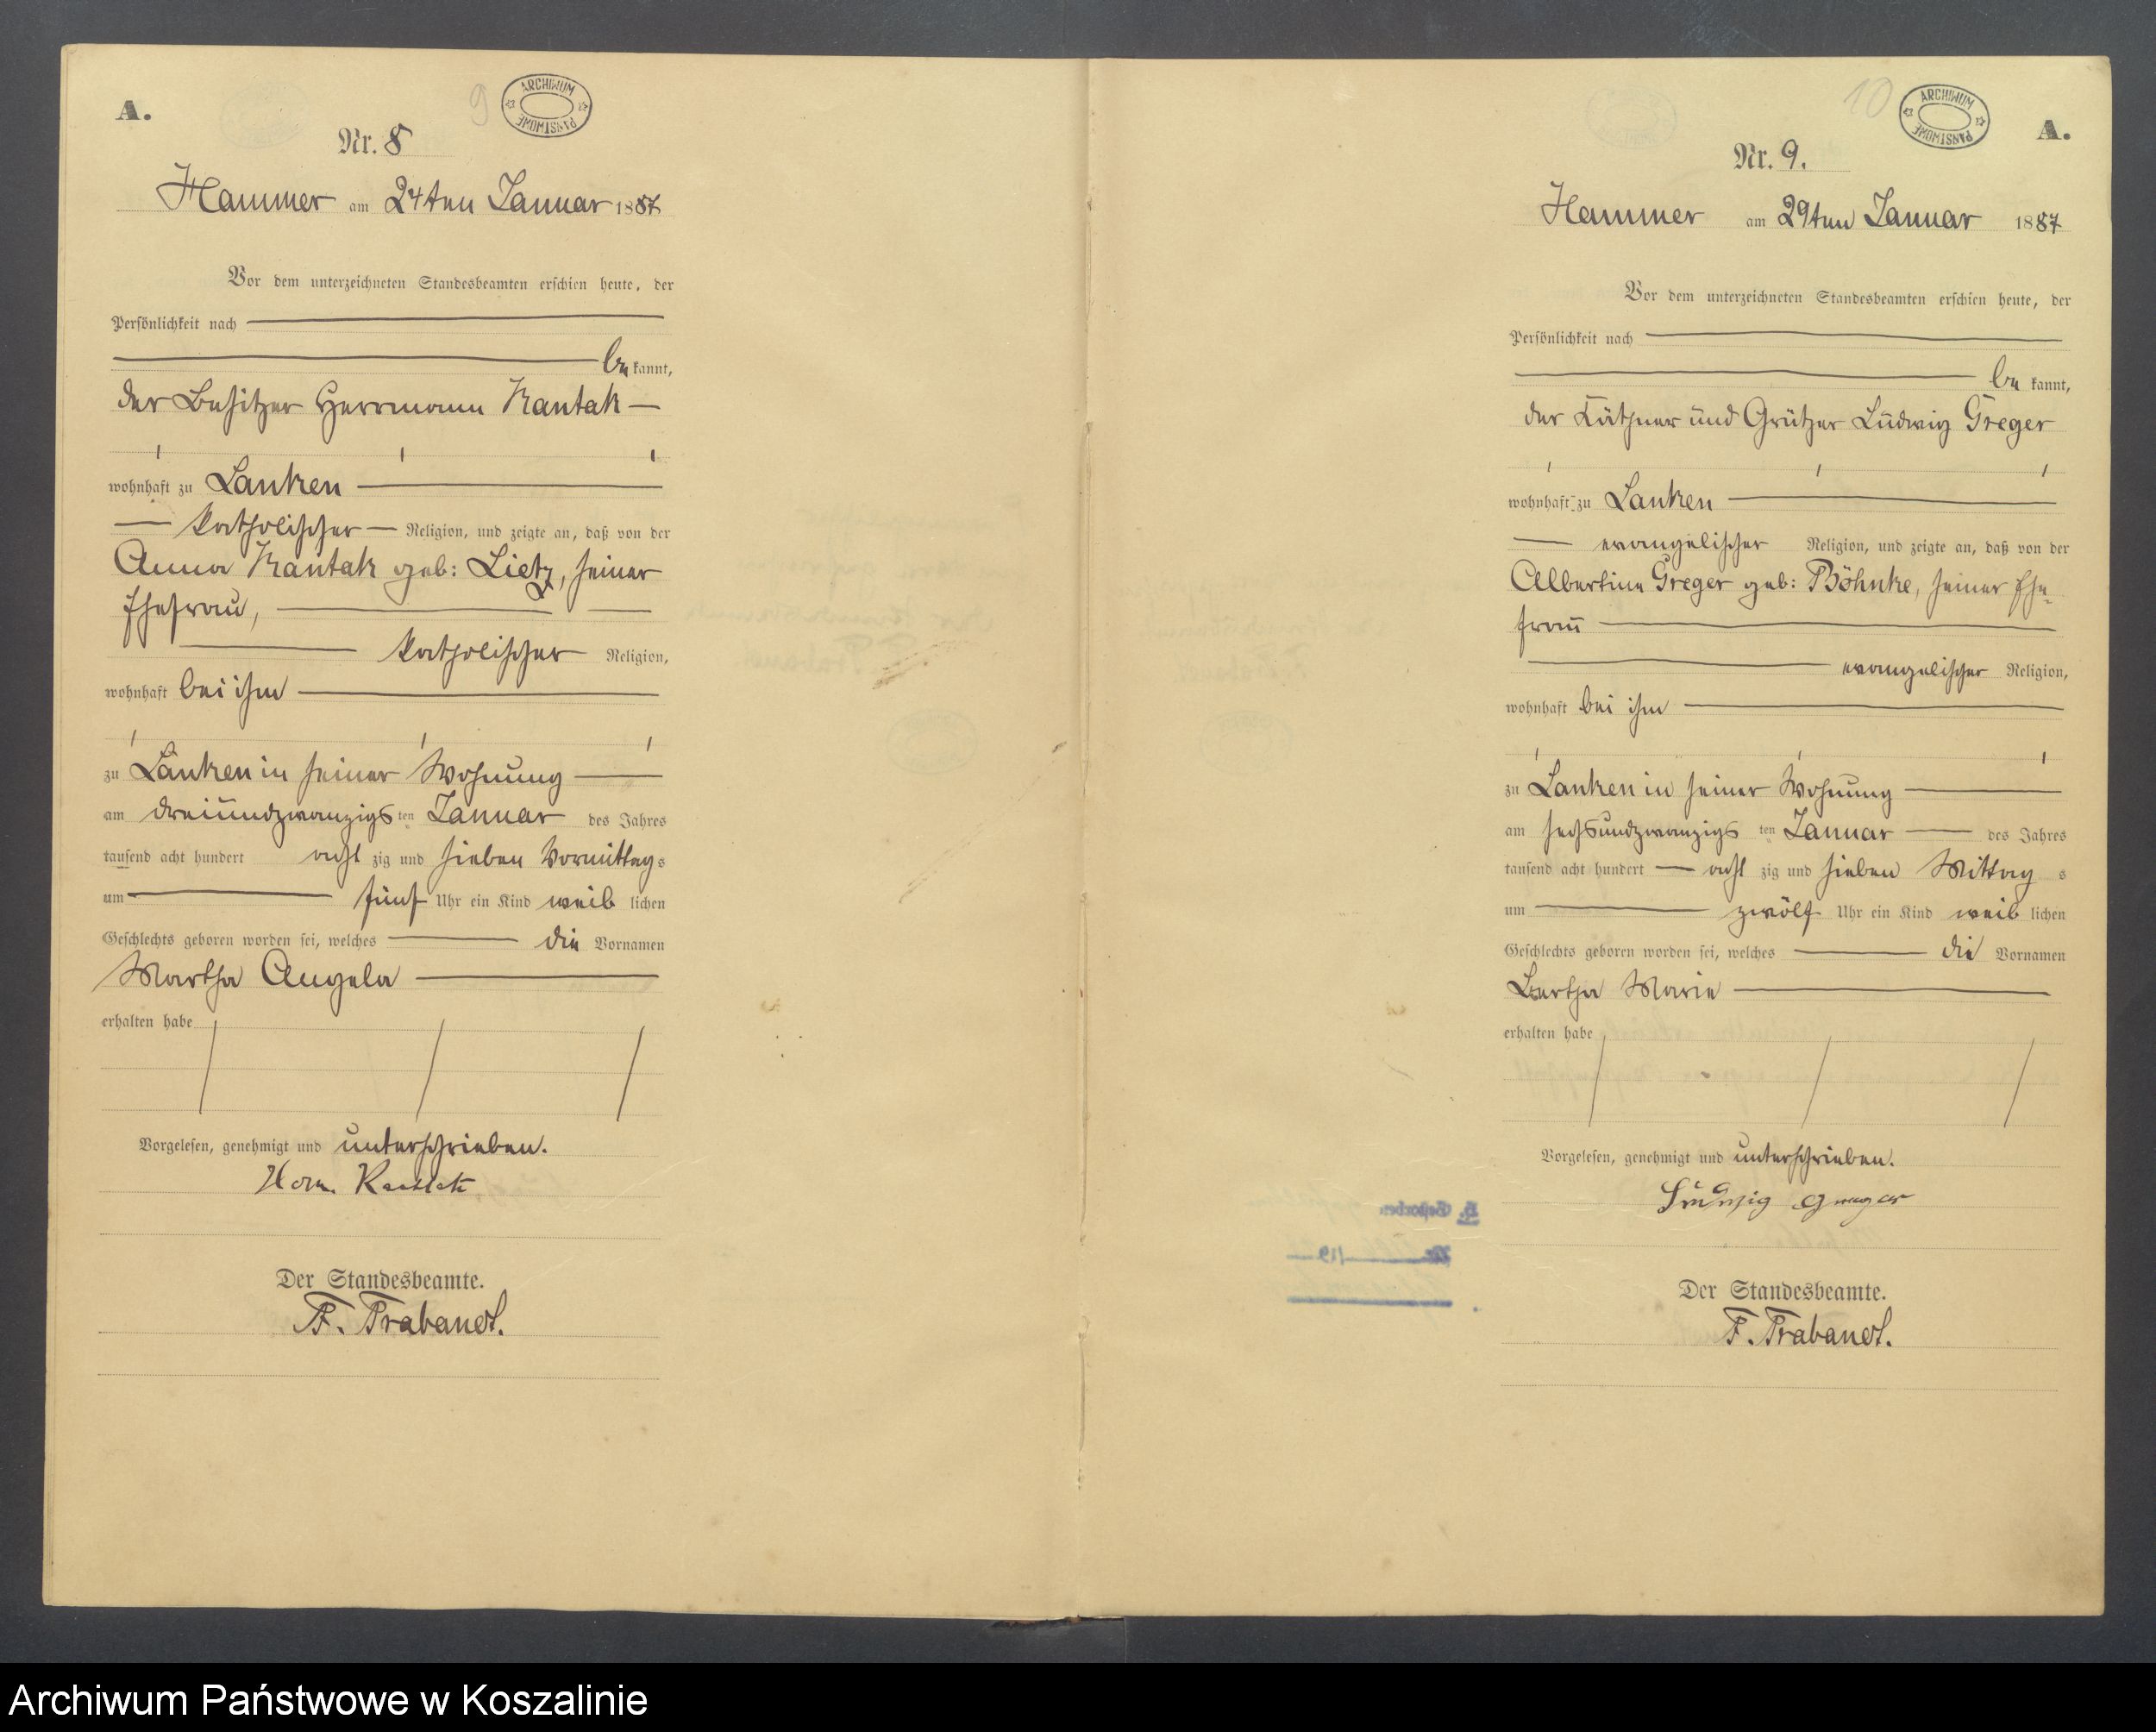 A.
9
ARCHIWUM PAŃSTWOWE
Nr. 8
Hammer am 24ten Januar 1887
Vor dem unterzeichneten Standesbeamten erschien heute, der
Persönlichkeit nach
be kannt,
der Besitzer Herrmann Kantak
wohnhaft zu Lanken
katholischer Religion, und zeigte an, daß von der
Anna Kantak geb: Lietz, seiner
Ehefrau,
katholischer Religion,
wohnhaft bei ihm
zu Lanken in seiner Wohnung
am dreiundzwanzigs ten Januar des Jahres
tausend acht hundert acht zig und sieben Vormittag s
um fünf Uhr ein Kind weib lichen
Geschlechts geboren worden sei, welches die Vornamen
Martha Angela
erhalten habe
Vorgelesen, genehmigt und unterschrieben.
Herm. Kantak
Der Standesbeamte.
F. Trabandt.
10
ARCHIWUM PAŃSTWOWE
A.
Nr. 9.
Hammer am 29ten Januar 1887
Vor dem unterzeichneten Standesbeamten erschien heute, der
Persönlichkeit nach
be kannt,
der Käthner und Grützer Ludwig Greger
wohnhaft zu Lanken
evangelischer Religion, und zeigte an, daß von der
Albertine Greger geb: Böhnke, seiner Ehe-
frau
evangelischer Religion,
wohnhaft bei ihm
zu Lanken in seiner Wohnung
am sechsundzwanzigs ten Januar des Jahres
tausend acht hundert acht zig und sieben Mittag s
um zwölf Uhr ein Kind weib lichen
Geschlechts geboren worden sei, welches die Vornamen
Bertha Marie
erhalten habe
Vorgelesen, genehmigt und unterschrieben.
Ludwig Greger
Der Standesbeamte.
F. Trabandt.
Archiwum Państwowe w Koszalinie